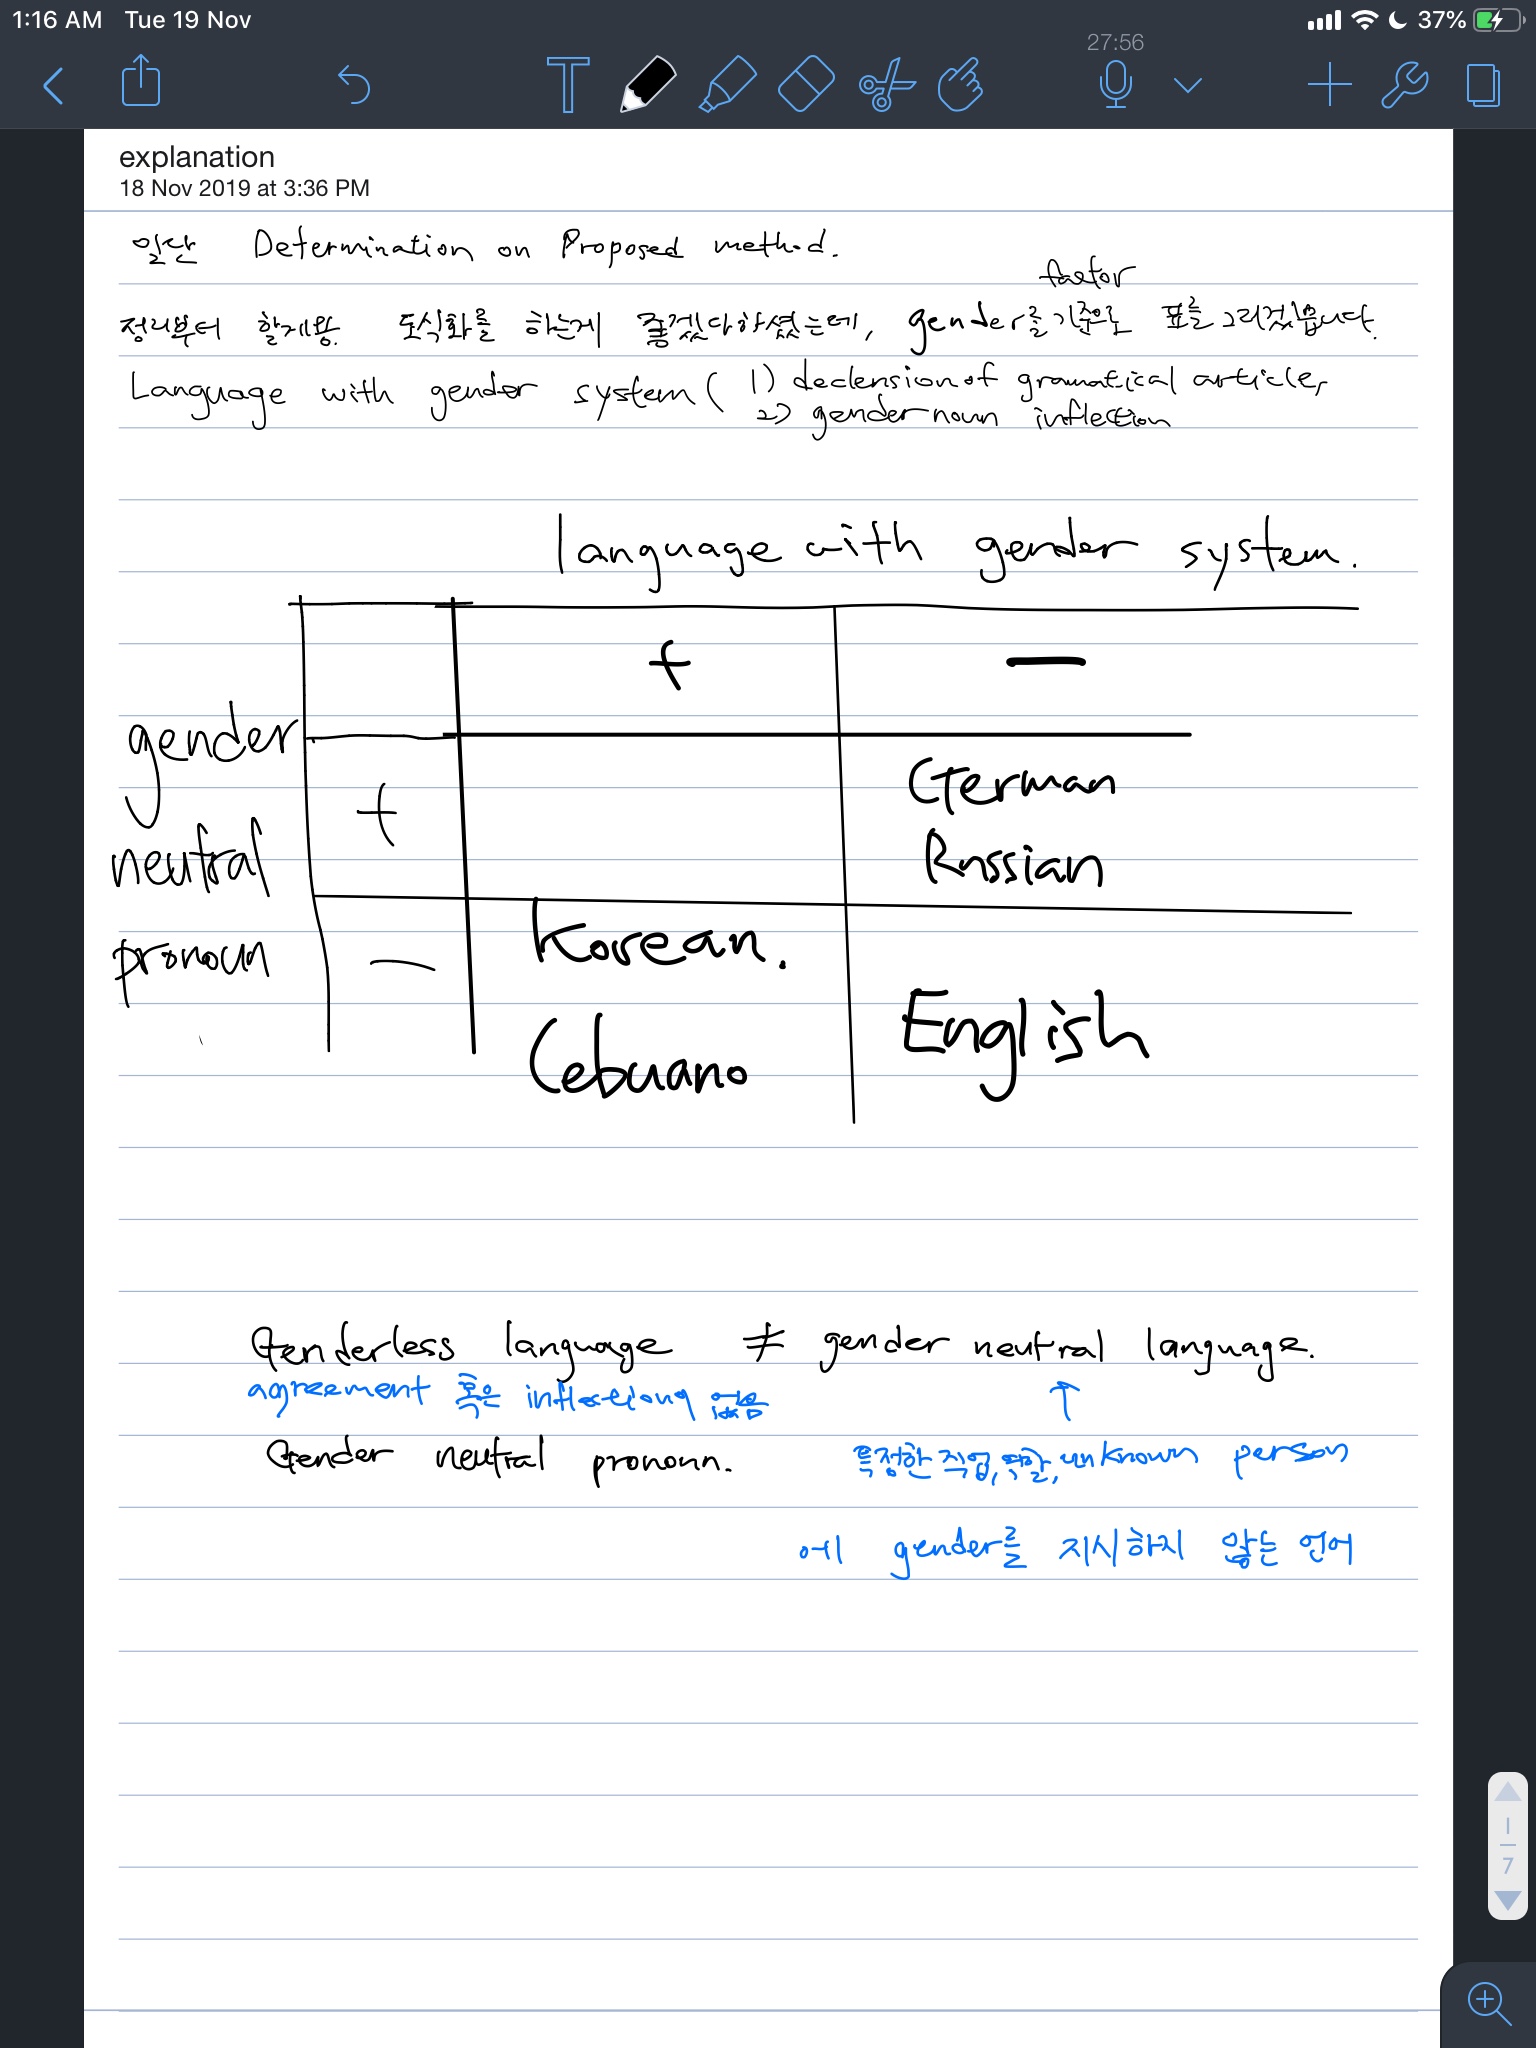 1:16 AM Tue 19 Nov
37%
27:56
explanation
18 Nov 2019 at 3:36 PM
일단 Determination on Proposed method.
factor
정리부터 할게용. 도식화를 하는게 좋겠다하셨는데, gender를 기준으로 표를 그리겠습니다.
Language with gender system ( 1) declension of gramatical article,
2) gender noun inflection
language with gender system.
+ —
gender
neutral
pronoun
+
German
Russian
—
Korean.
Cebuano
English
Genderless language ≠ gender neutral language.
agreement 혹은 inflection이 없음 ↑
Gender neutral pronoun. 특정한 직업, 역할, unknown person
에 gender를 지시하지 않는 언어
1
7